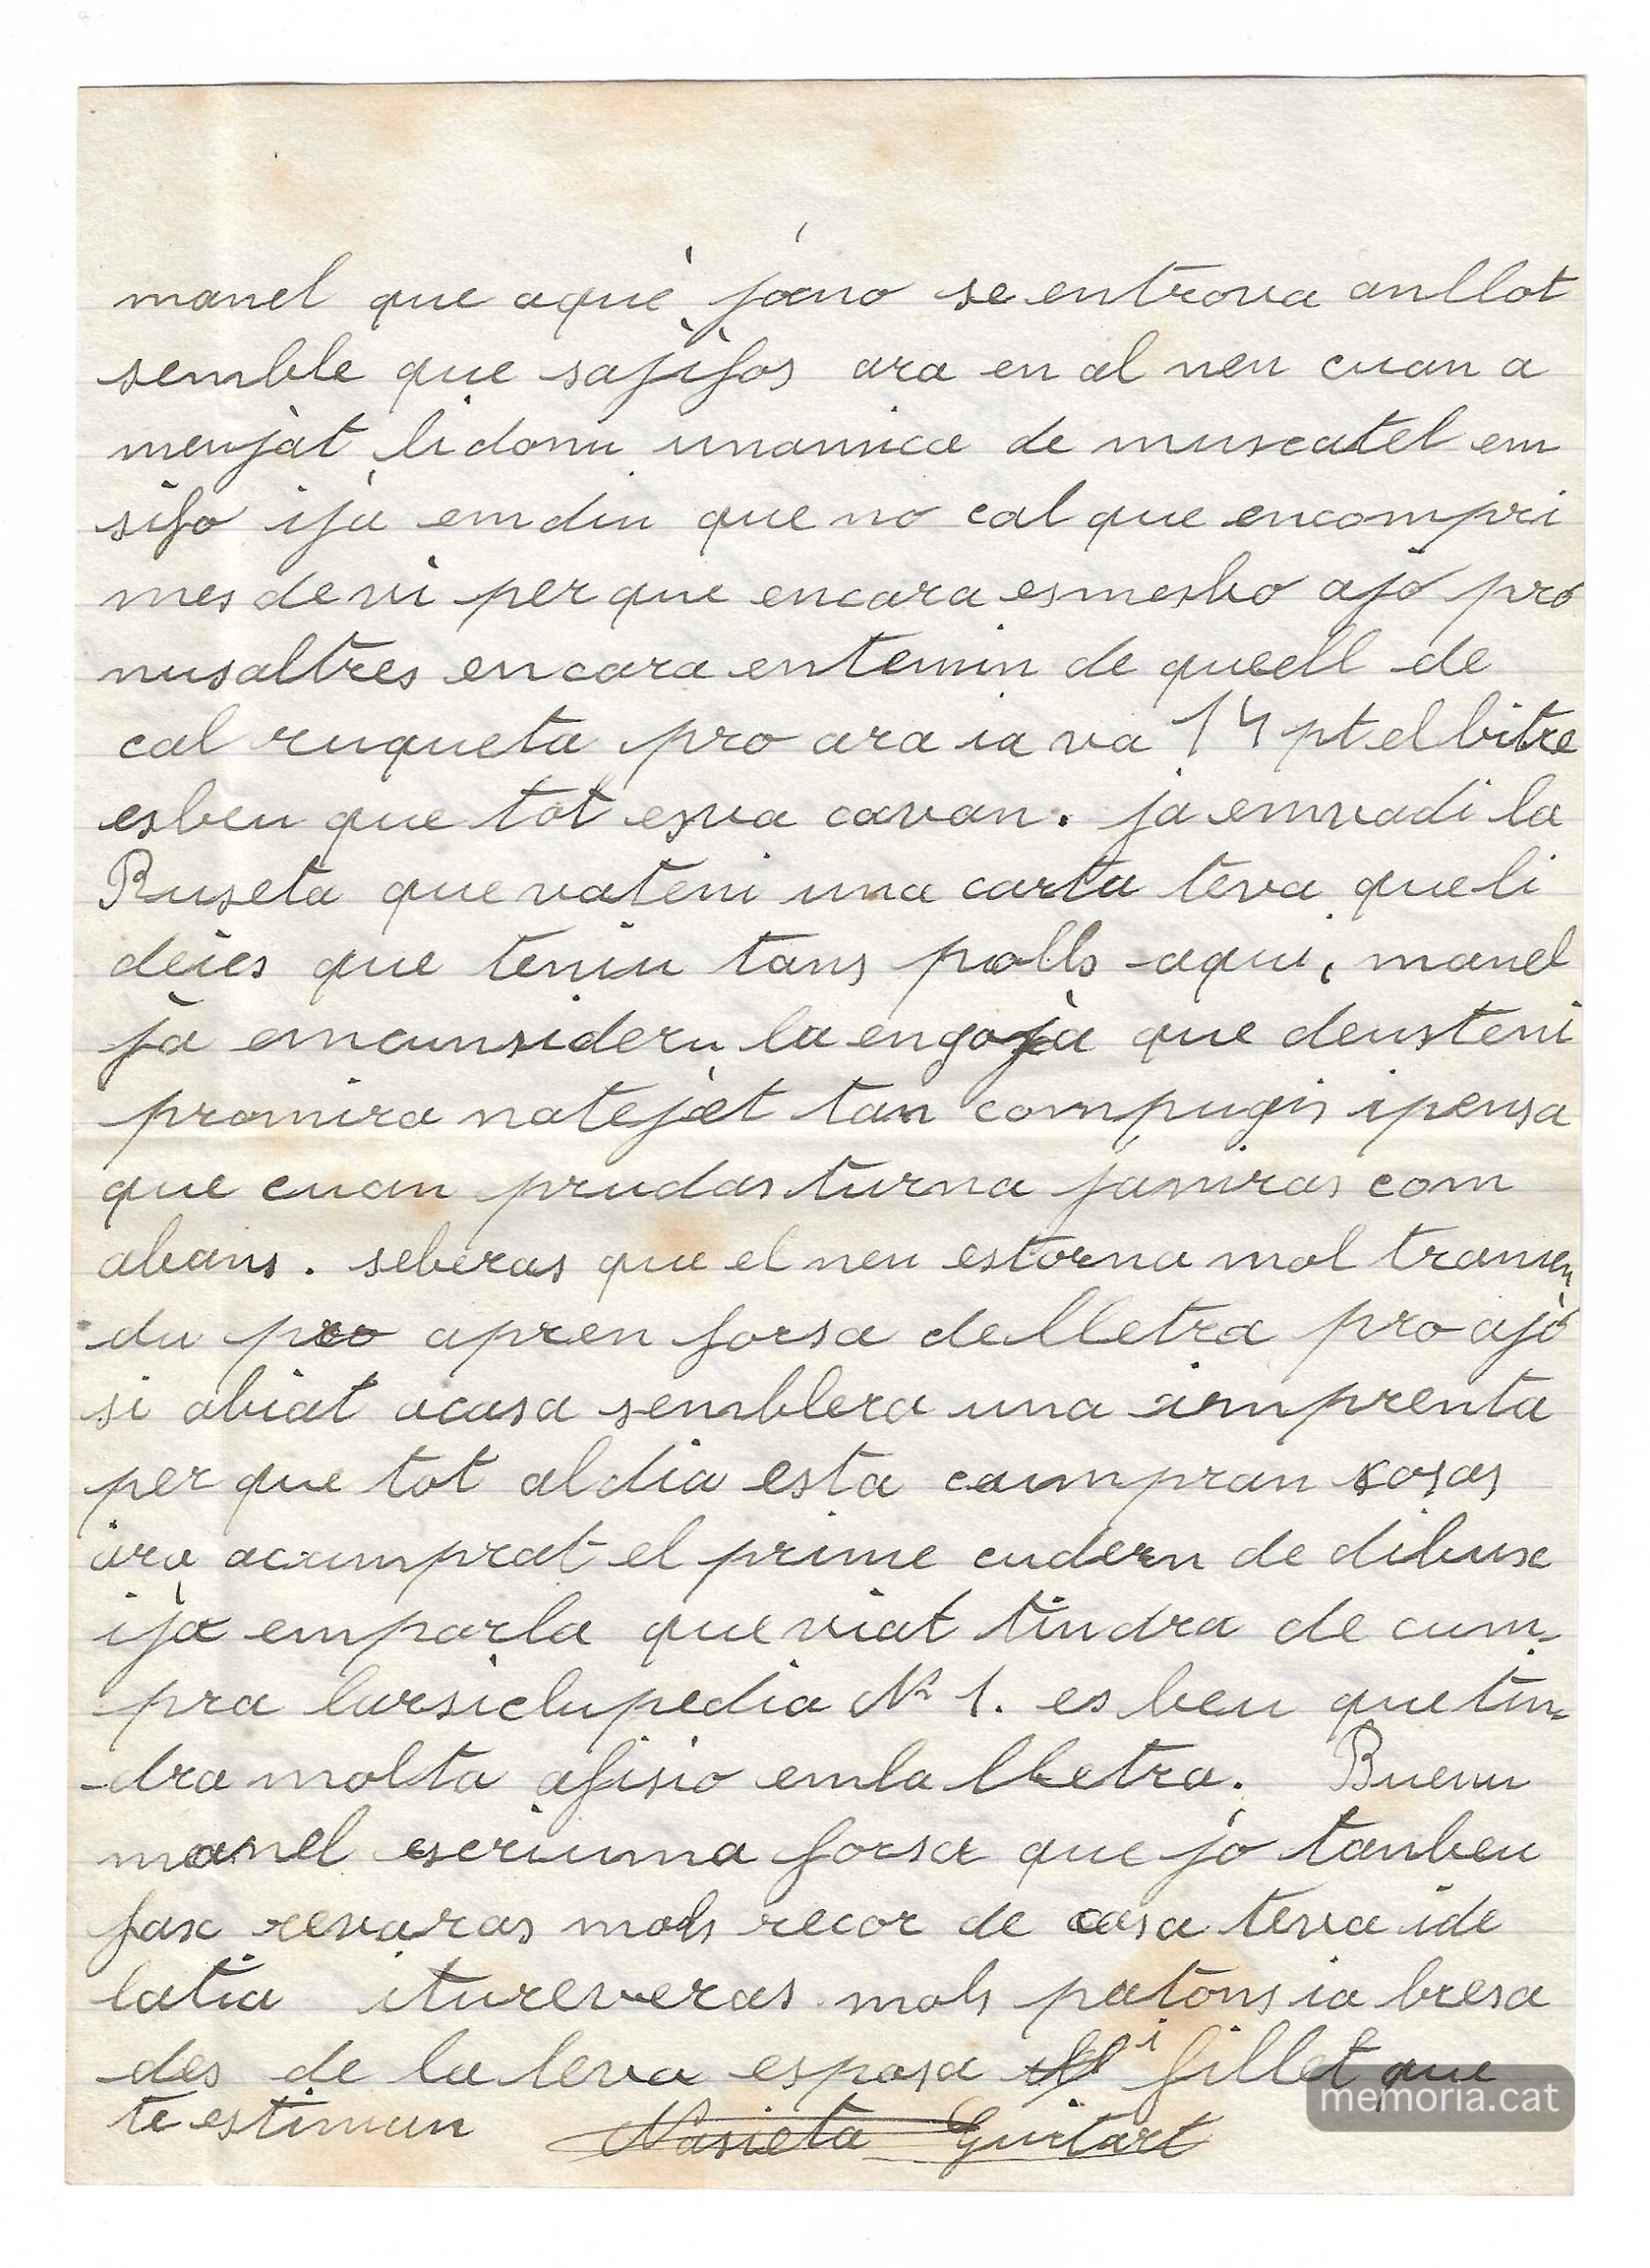 manel que aquè jàno se entrova anllot
semble que sajifos ara en al nen cuan a
menjat lidonu unamica de muscatel em
sifo ija emdiu que no cal que encompri
mes de vi per que encara esmesbo ajó pró
nusaltres encara entenim de quell de
cal ruqueta pro ara ia va 14 pt el litre
esben que tot esva cavan. ja emvadi la
Ruseta que vateni una carta teva que li
deies que teniu tans polls aqui, manel
ja emcunsideru la engoja que deusteni
promira natejat tan compugis ipensa
que cuan prudas turna jamiras com
abans. seberas que el nen estorna mol tramen
du pro apren forsa delletra pro ajó
si abiat acasa semblera una imprenta
per que tot aldia esta caumpran kosas
ara acumprat el prime cudern de dibuxe
ija emparla que viat tindra de cum-
pra lursiclupedia Nº 1. es ben que tin-
-dra molta afisio emla lletra. Buenu
manel escriuma forsa que jo tanben
fax revaras mols recor de casa teva ide
latia itureveras mols patons ia bresa
des de la teva esposa i fillet que
te estimun Nasieta Guitart
memoria.cat